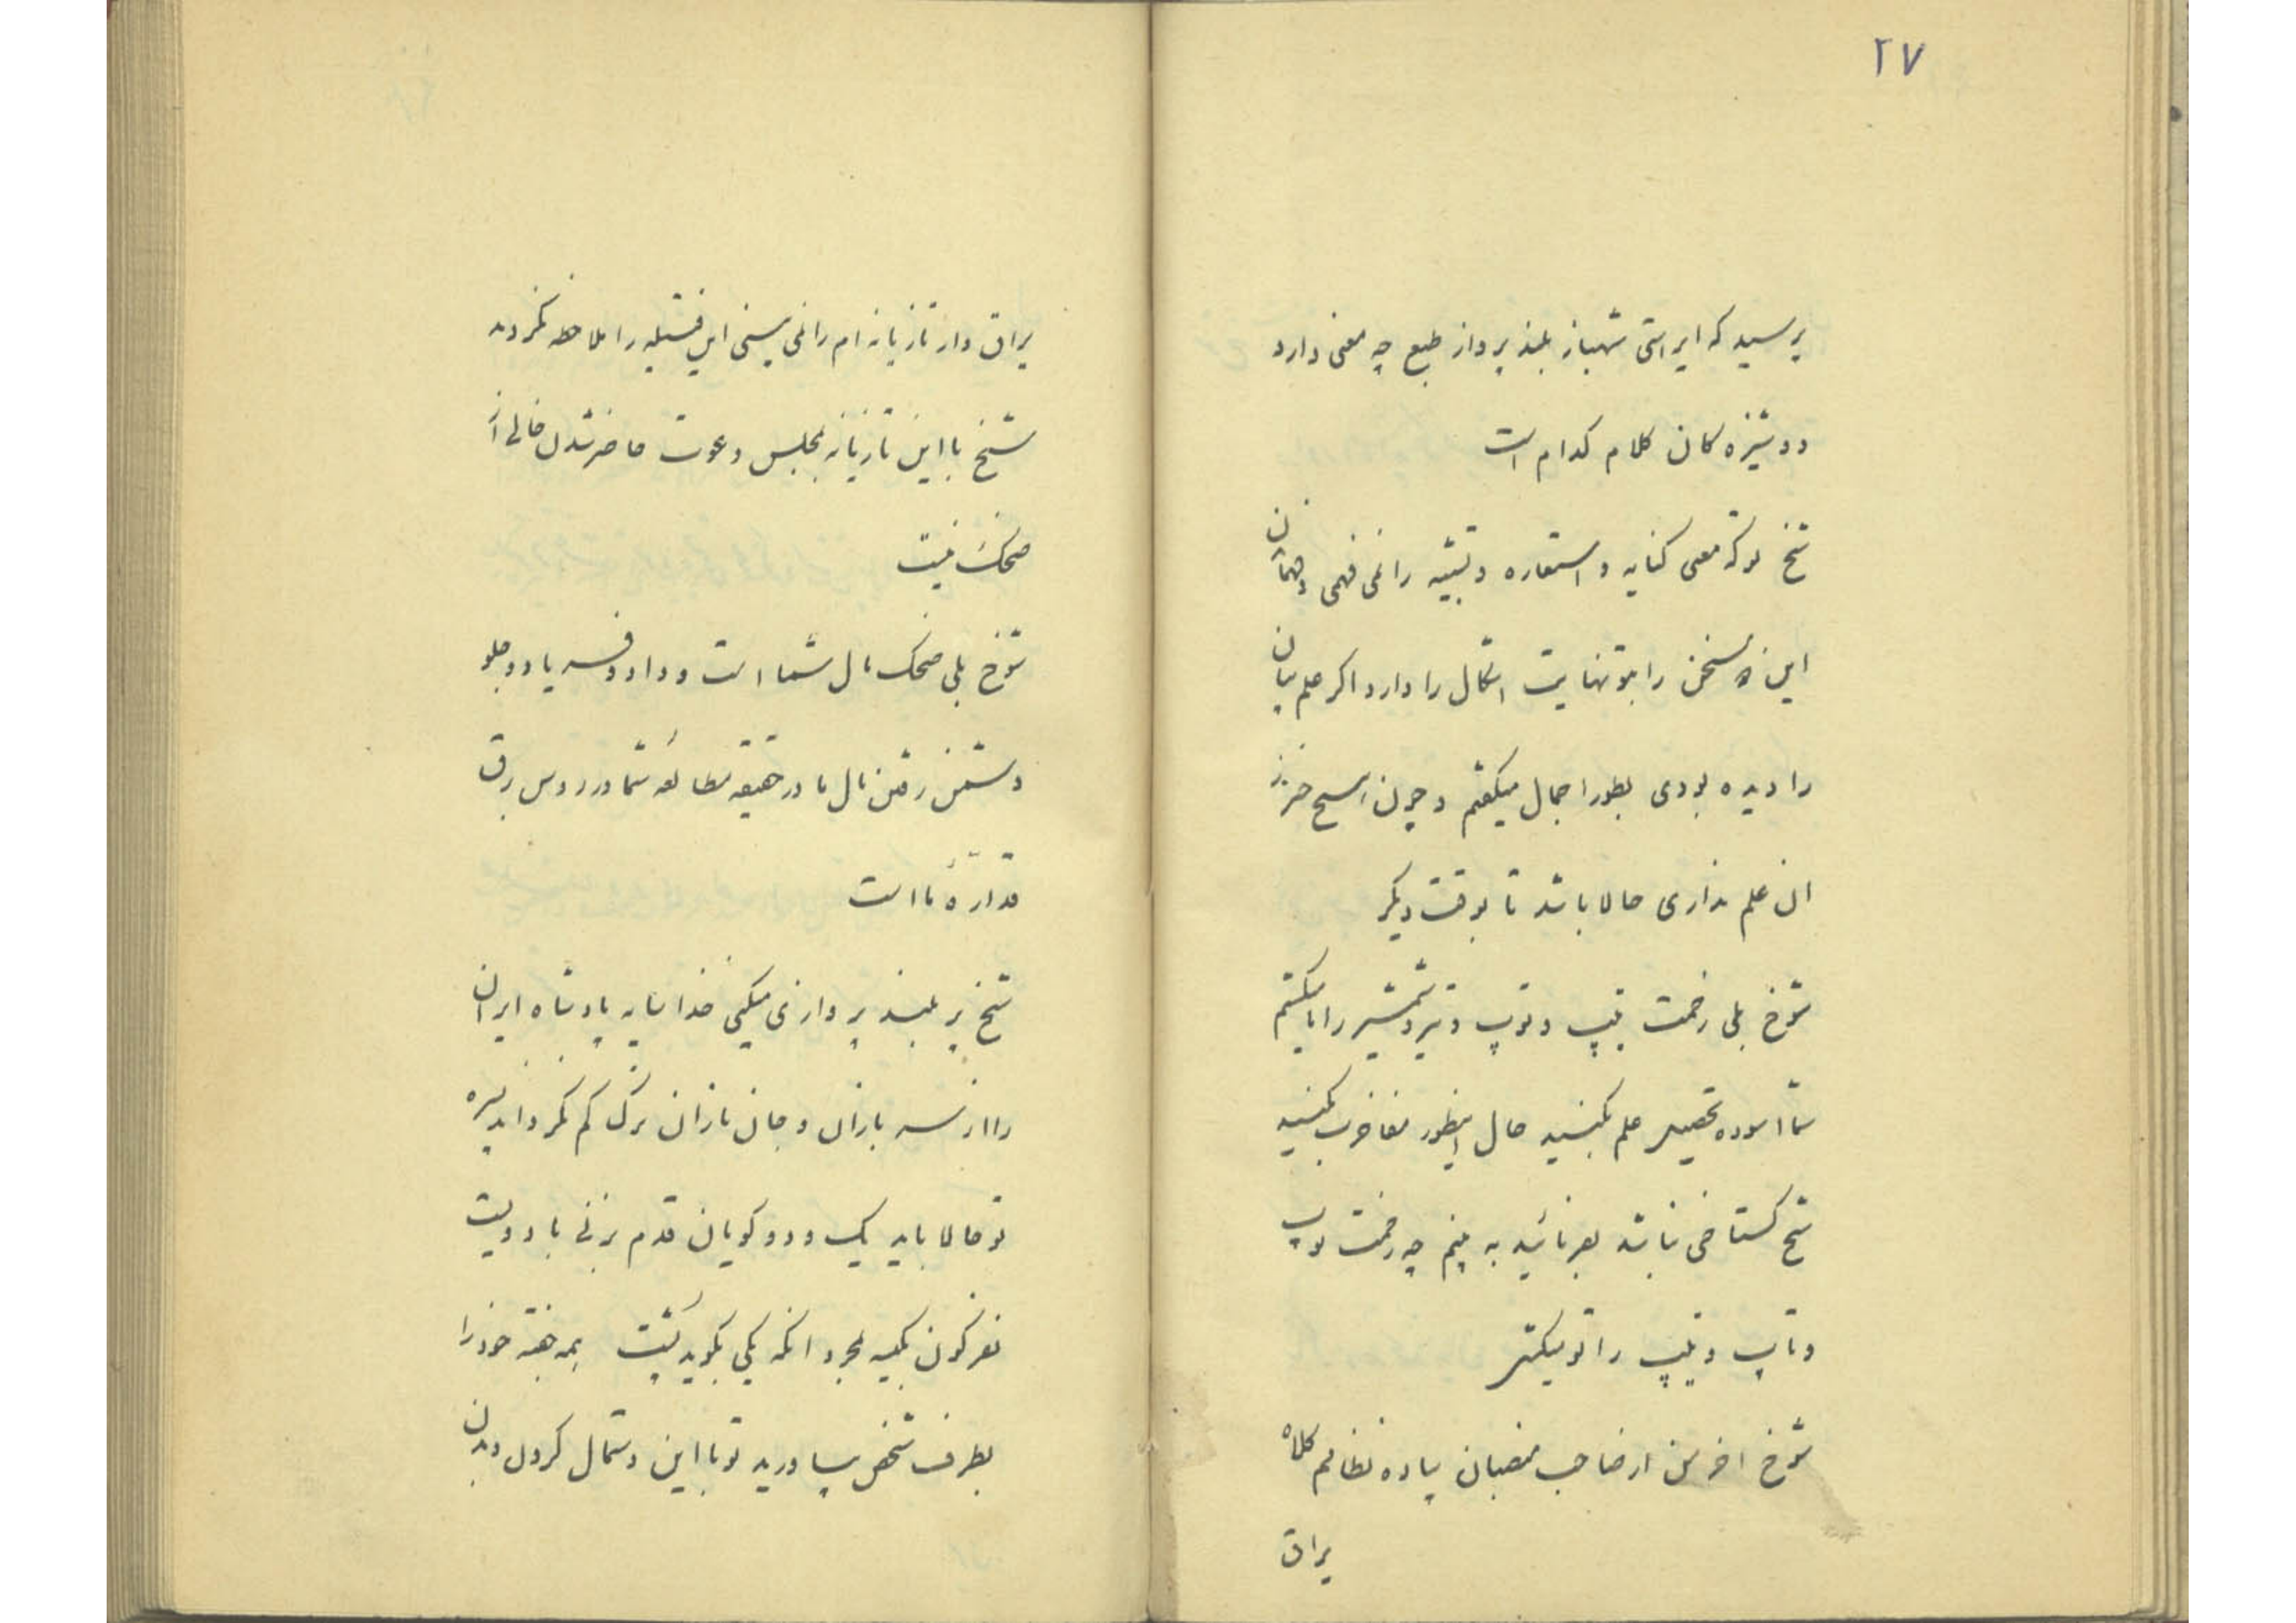 ۲۷
پرسید که ایراستی شهباز بلند پرواز طبع چه معنی دارد
دوشیزه کان کلام کدام است
شیخ تو که معنی کنایه و استعاره و تشبیه را نمی فهمی
این سخن را بتو نهایت اشکال را دارد اگر علم بیان
را دیده بودی بطور اجمال میگفتم و چون هیچ خبر از
ان علم نداری حالا باشد تا بوقت دیگر
شوخ بلی زحمت تیپ و توپ و تیر و شمشیر را ما بکشیم
شما اسوده تحصیل علم بکنید حال اینطور مفاخرت بکنید
شیخ گستاخی نباشد بفرمائید به بینم چه زحمت توپ
و تاپ و تیپ را تو میکشی
شوخ اخر من از صاحب منصبان پیاده نظامم کلاه
یراق
یراق دار تازیانه ام را نمی بینی این فتیله را ملاحظه نکردند
شیخ با این تازیانه بمجلس دعوت حاضر شدن خالی از
ضحک نیست
شوخ بلی ضحک مال شما است و داد و یا در جلو
دشمن رفتن مال ما در حقیقه مطالعه شما در روس برق
قداره ما است
شیخ پر بلند پروازی میکنی خدا سایه پادشاه ایران
را از سربازان و جان بازان بزرگ کم نکرداند
تو حالا باید یک و دو گویان قدم بزنی با دویست
نفر بمجرد انکه یکی بگوید همه خود را
بطرف شخص بیاورید تو با این دستمال گردن و بدن